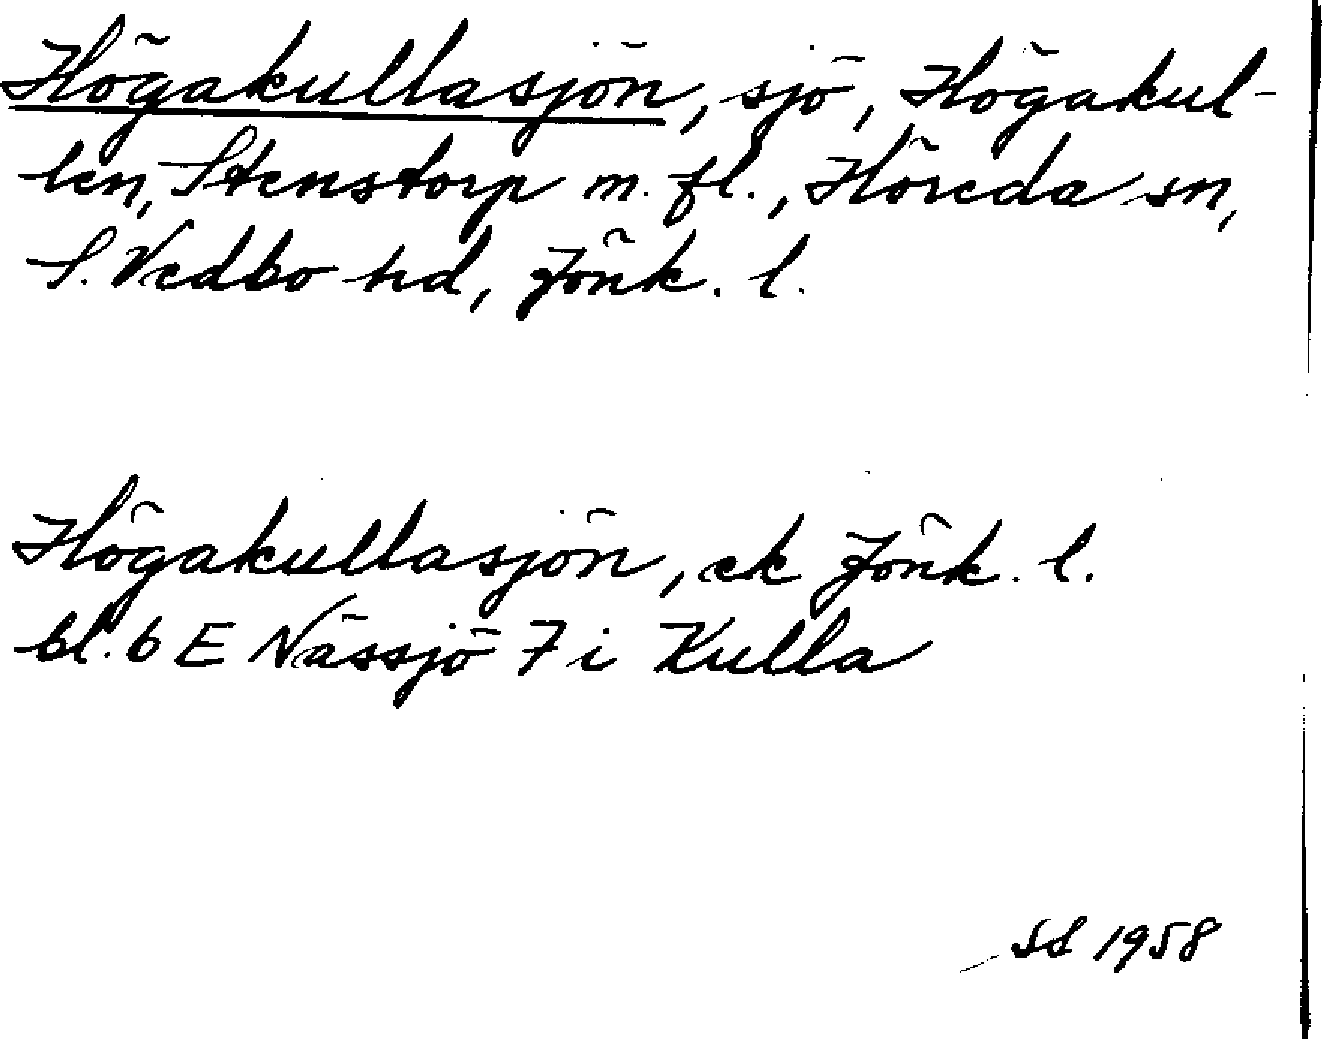 Högakullasjön, sjö, Högakul-
len, Stenstorp m. fl., Höreda sn,
S. Vedbo hd, Jönk. l.
Högakullasjön, ek Jönk. l.
bl. 6 E Nässjö 7 i Kulla
SS 1958